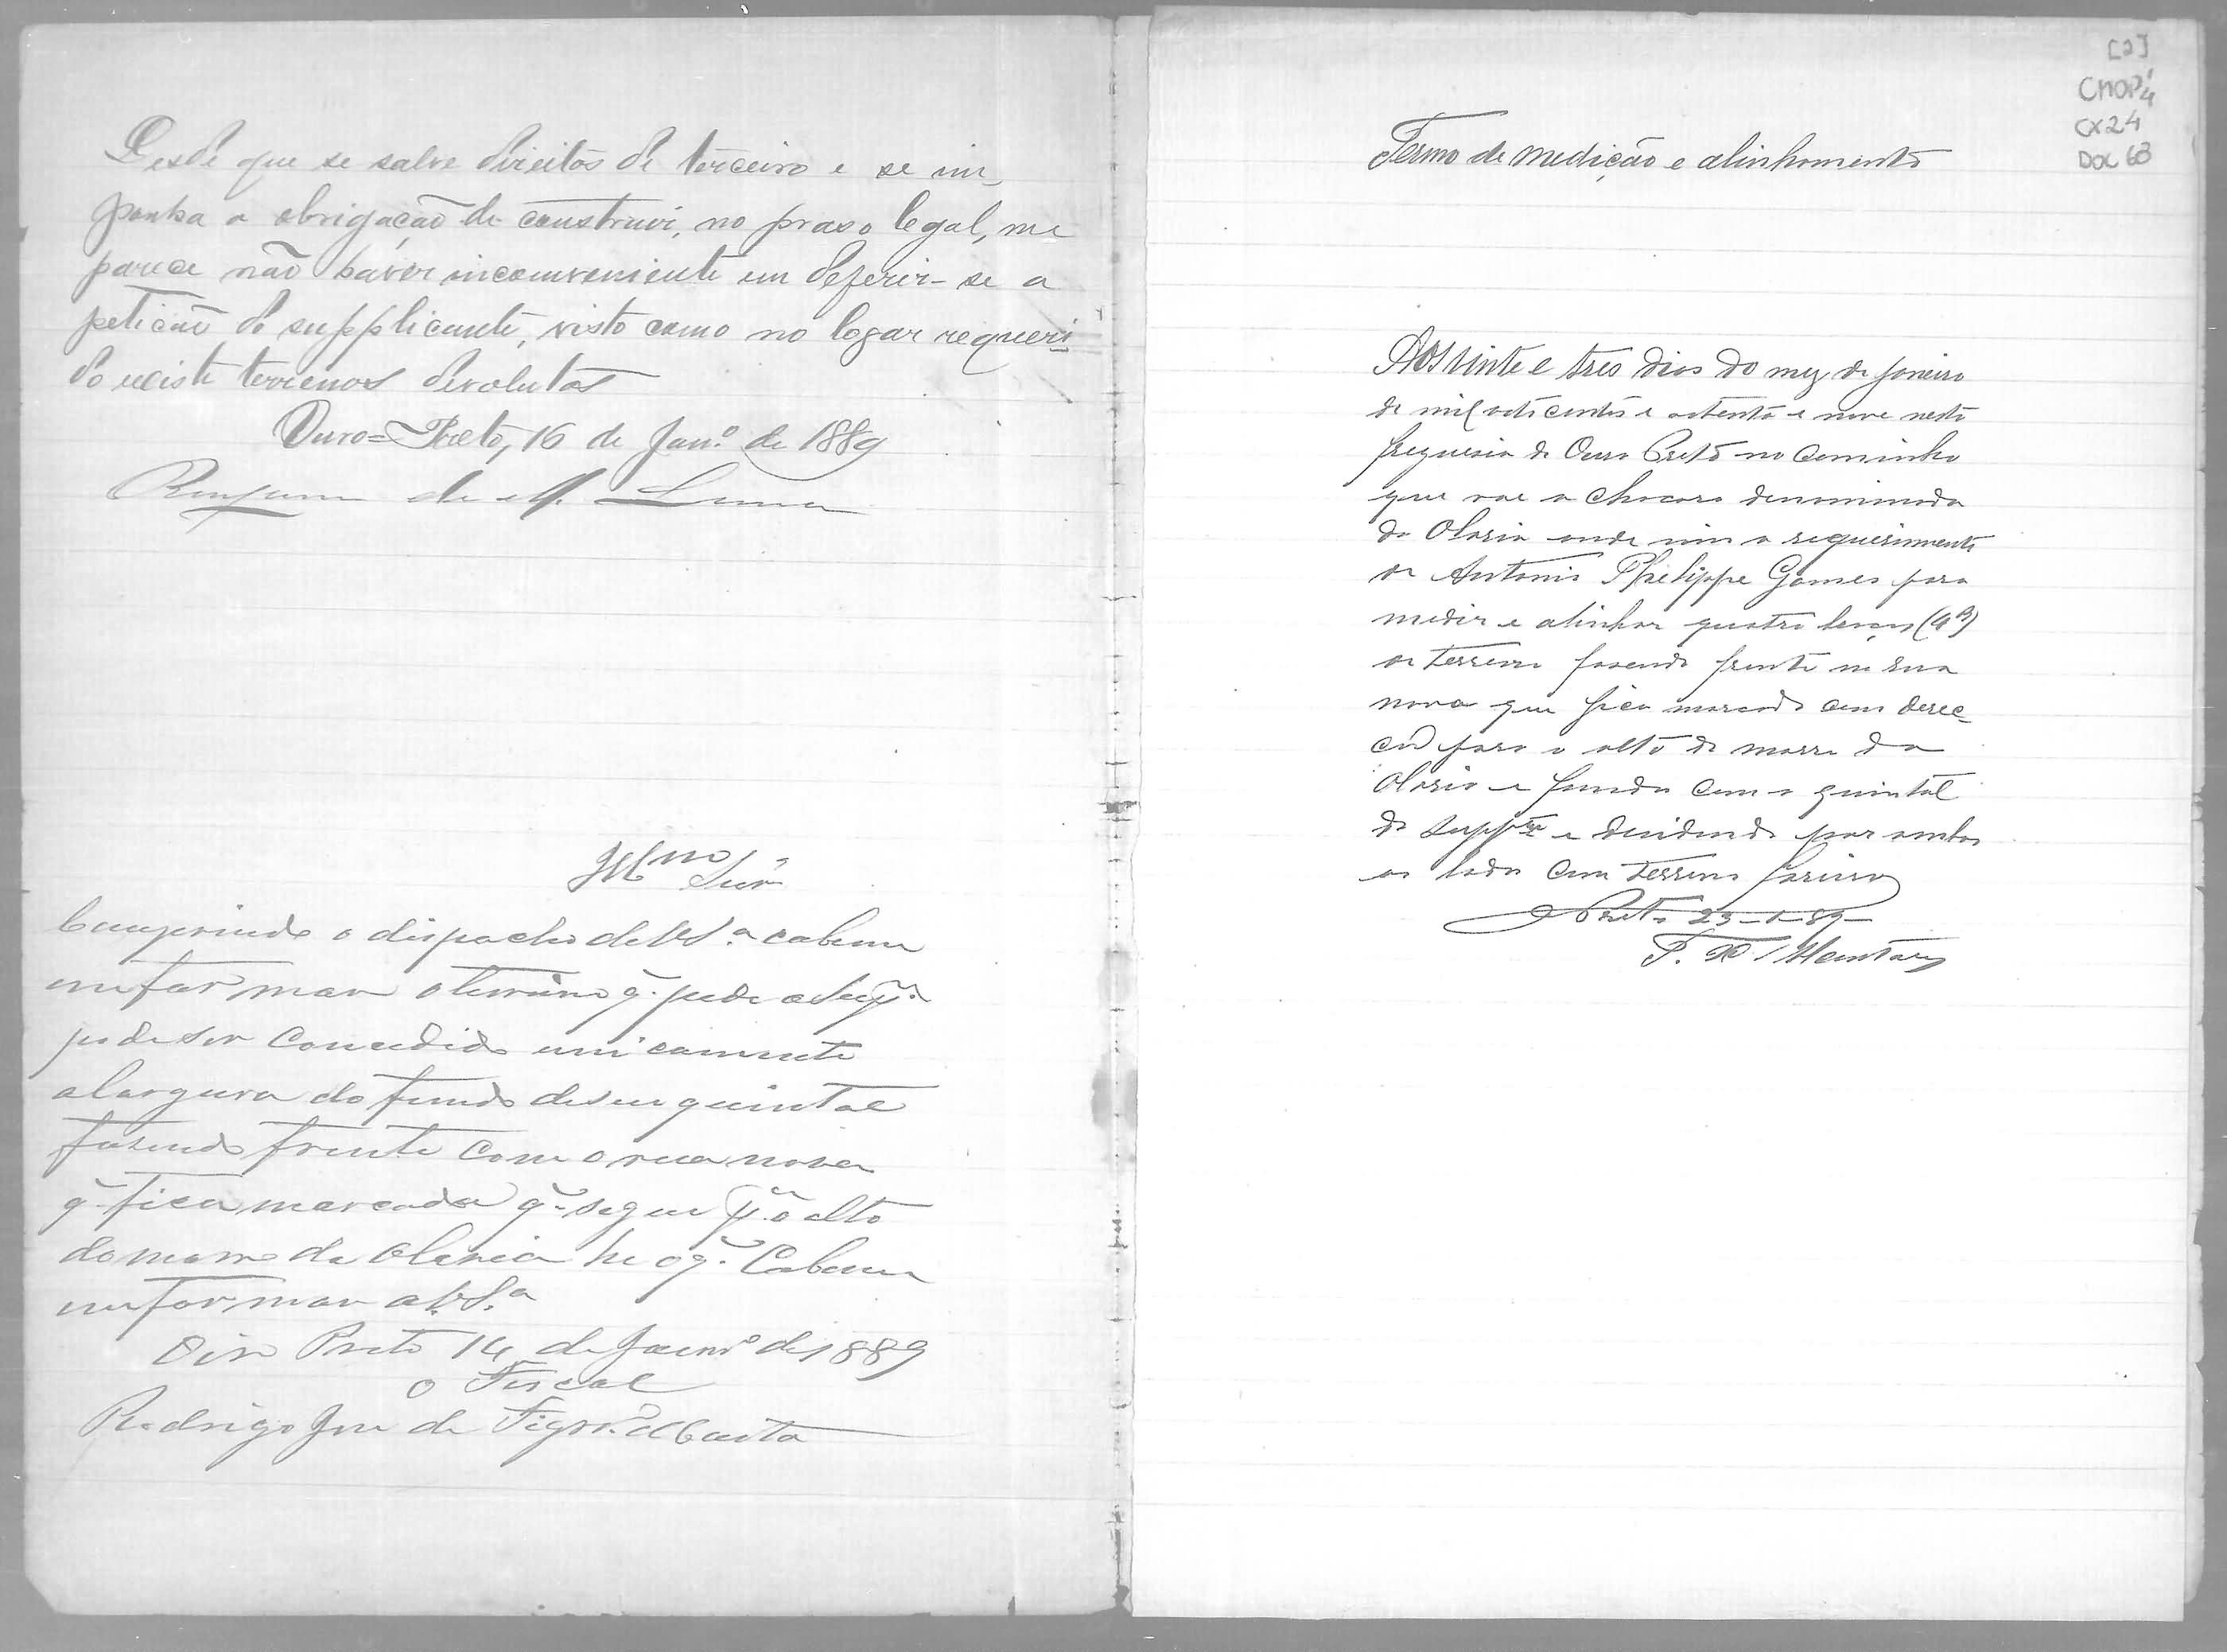 Desde que se salve direitos de terceiro e se im-
ponha a obrigação de construir, no praso legal, me
parece não haver inconveniente em deferir-se a
petição do supplicante, visto como no logar requeri-
do existe terrenos devolutos
Ouro=Preto, 16 de Jan.º de 1889
de M.
Illmo Snr
Comprindo o despacho de VSª cabeme
emformar o terreno q. pede o Supp.
pode ser concedido unicamente
a largura do fundo de seu quintal
fasendo frente com a rua nova
q. fica marcada q. segue pª o alto
do morro da Olaria he o q. Cabeme
emformar a V.S.ª
Oiro Preto 14 de Janrº de 1889
O Fiscal
Rodrigo José de Figrdº
[2]
CMOP
CX24
DOC 63
Termo de medição e alinhamento
Aos vinte e tres dias do mez de Janeiro
de mil oitocentos e oitenta e nove nesta
freguesia de Ouro Preto no Caminho
que vae a Chacara denominada
da Olaria onde vim a requerimento
de Antonio Phelippe Gomes para
medir e alinhar quatro braças (4B)
de terreno fasendo frente na rua
nova que fica marcada com direc-
ção para o alto do morro da
Olaria e fundo com o quintal
do suppte e dividindo por ambos
os lados com terreno
O Preto 23-1-89